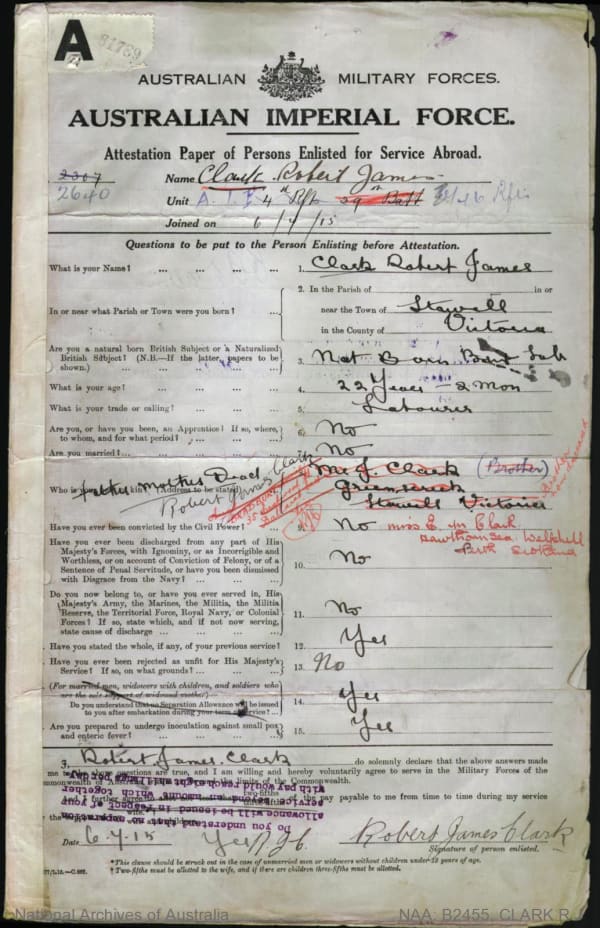 A
81789
AUSTRALIAN MILITARY FORCES.
AUSTRALIAN IMPERIAL FORCE.
Attestation Paper of Persons Enlisted for Service Abroad.
2640
Name Clark Robert James
Unit A.I.F. 4th Rfts 29th Batt
Joined on 6/7/15
Questions to be put to the Person Enlisting before Attestation.
What is your Name? ... ... ... ... 1. Clark Robert James
2. In the Parish of in or
In or near what Parish or Town were you born? ... near the Town of Stawell
in the County of Victoria
Are you a natural born British Subject or a Naturalized
British Subject? (N.B.—If the latter, papers to be
shown.) 3. Nat Born Brit Sub
What is your age? ... ... ... ... 4. 22 Years - 2 Mon
What is your trade or calling? ... ... ... 5. Labourer
Are you, or have you been, an Apprentice? If so, where,
to whom, and for what period? ... ... ... 6. No
Are you married? ... ... ... ... No
Robert James Clark
Who is father mother Dead (Address to be stated) Mr J. Clark (Brother)
Stawell Victoria
Have you ever been convicted by the Civil Power? ... 9. No Miss E. M. Clark
Perth Scotland
Have you ever been discharged from any part of His
Majesty's Forces, with Ignominy, or as Incorrigible and
Worthless, or on account of Conviction of Felony, or of a
Sentence of Penal Servitude, or have you been dismissed
with Disgrace from the Navy? ... ... ... 10. No
Do you now belong to, or have you ever served in, His
Majesty's Army, the Marines, the Militia, the Militia
Reserve, the Territorial Force, Royal Navy, or Colonial
Forces? If so, state which, and if not now serving,
state cause of discharge ... ... ... ... 11. No
Have you stated the whole, if any, of your previous service? 12. Yes
Have you ever been rejected as unfit for His Majesty's
Service? If so, on what grounds? ... ... ... 13. No
(For married men, widowers with children, and soldiers who
are the sole support of widowed mother)
Do you understand that no Separation Allowance will be issued
to you after embarkation during your term of service? ... 14. Yes
Are you prepared to undergo inoculation against small pox
and enteric fever? ... ... ... ... 15. Yes
I, Robert James Clark do solemnly declare that the above answers made
me to the above questions are true, and I am willing and hereby voluntarily agree to serve in the Military Forces of the
Commonwealth of Australia within or beyond the limits of the Commonwealth.
of the pay payable to me from time to time during my service
Do you understand that no separation
allowance will be issued in respect of your
service beyond an amount which together
with pay would reach eight shillings per day
Date 6.7.15 Yes R J C Robert James Clark
Signature of person enlisted.
*This clause should be struck out in the case of unmarried men or widowers without children under 18 years of age.
† Two-fifths must be allotted to the wife, and if there are children three-fifths must be allotted.
National Archives of Australia NAA: B2455, CLARK R J